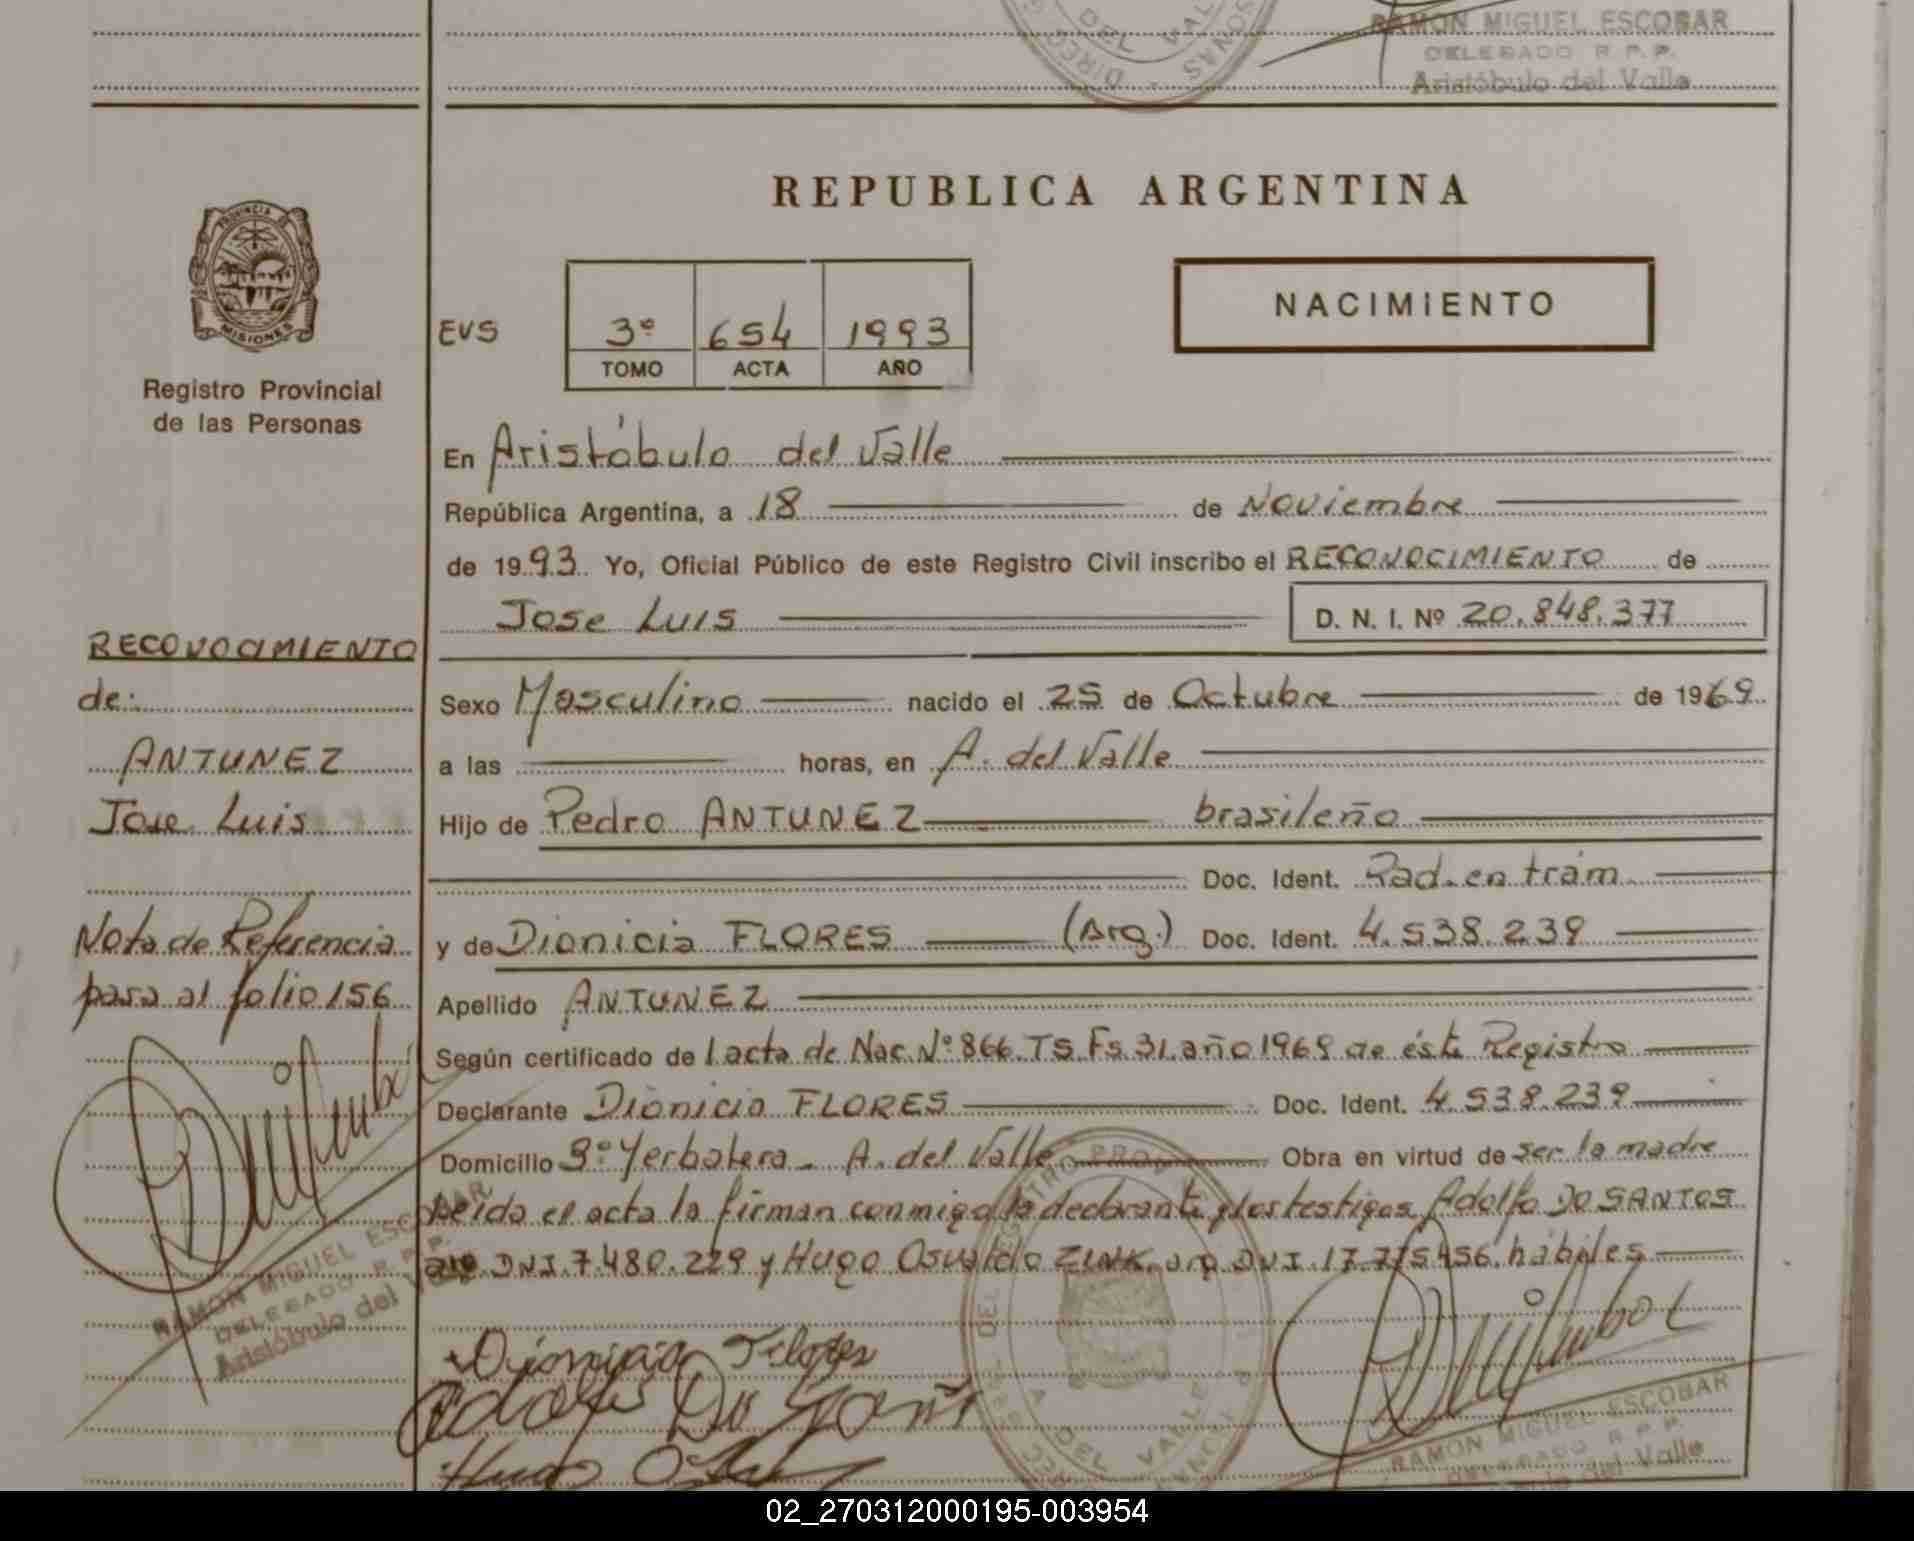 RAMON MIGUEL ESCOBAR
DELEGADO R. P. P.
Aristóbulo del Valle
DEL VALLE
REPUBLICA ARGENTINA
PROVINCIA DE
MISIONES
Registro Provincial
de las Personas
EVS
3º 654 1993
TOMO ACTA AÑO
NACIMIENTO
En Aristóbulo del Valle
República Argentina, a 18 de Noviembre
de 1993. Yo, Oficial Público de este Registro Civil inscribo el RECONOCIMIENTO de
Jose Luis D. N. I. Nº 20.848.377
RECONOCIMIENTO
de:
ANTUNEZ
Jose Luis
Nota de Referencia
para al folio 156
Sexo Masculino nacido el 25 de Octubre de 1969
a las horas, en A. del Valle
Hijo de Pedro ANTUNEZ brasileño
Doc. Ident. Rad. en trám.
y de Dionicia FLORES (Arg.) Doc. Ident. 4.538.239
Apellido ANTUNEZ
Según certificado de l acta de Nac. Nº 866. T5. Fs. 31. año 1969 de éste Registro
Declarante Dionicia FLORES Doc. Ident. 4.538.239
Domicilio 3º Yerbatera - A. del Valle Obra en virtud de ser la madre
Leida el acta la firman conmigo la declarante y los testigos Adolfo DO SANTOS
arg DNI. 7.480.229 y Hugo Osvaldo ZINK. arg DNI. 17.775456. hábiles
Dionicia Flores
RAMON MIGUEL ESCOBAR
DELEGADO R. P. P.
Aristóbulo del Valle
DEL VALLE
RAMON MIGUEL ESCOBAR
DELEGADO R. P. P.
del Valle
02_270312000195-003954